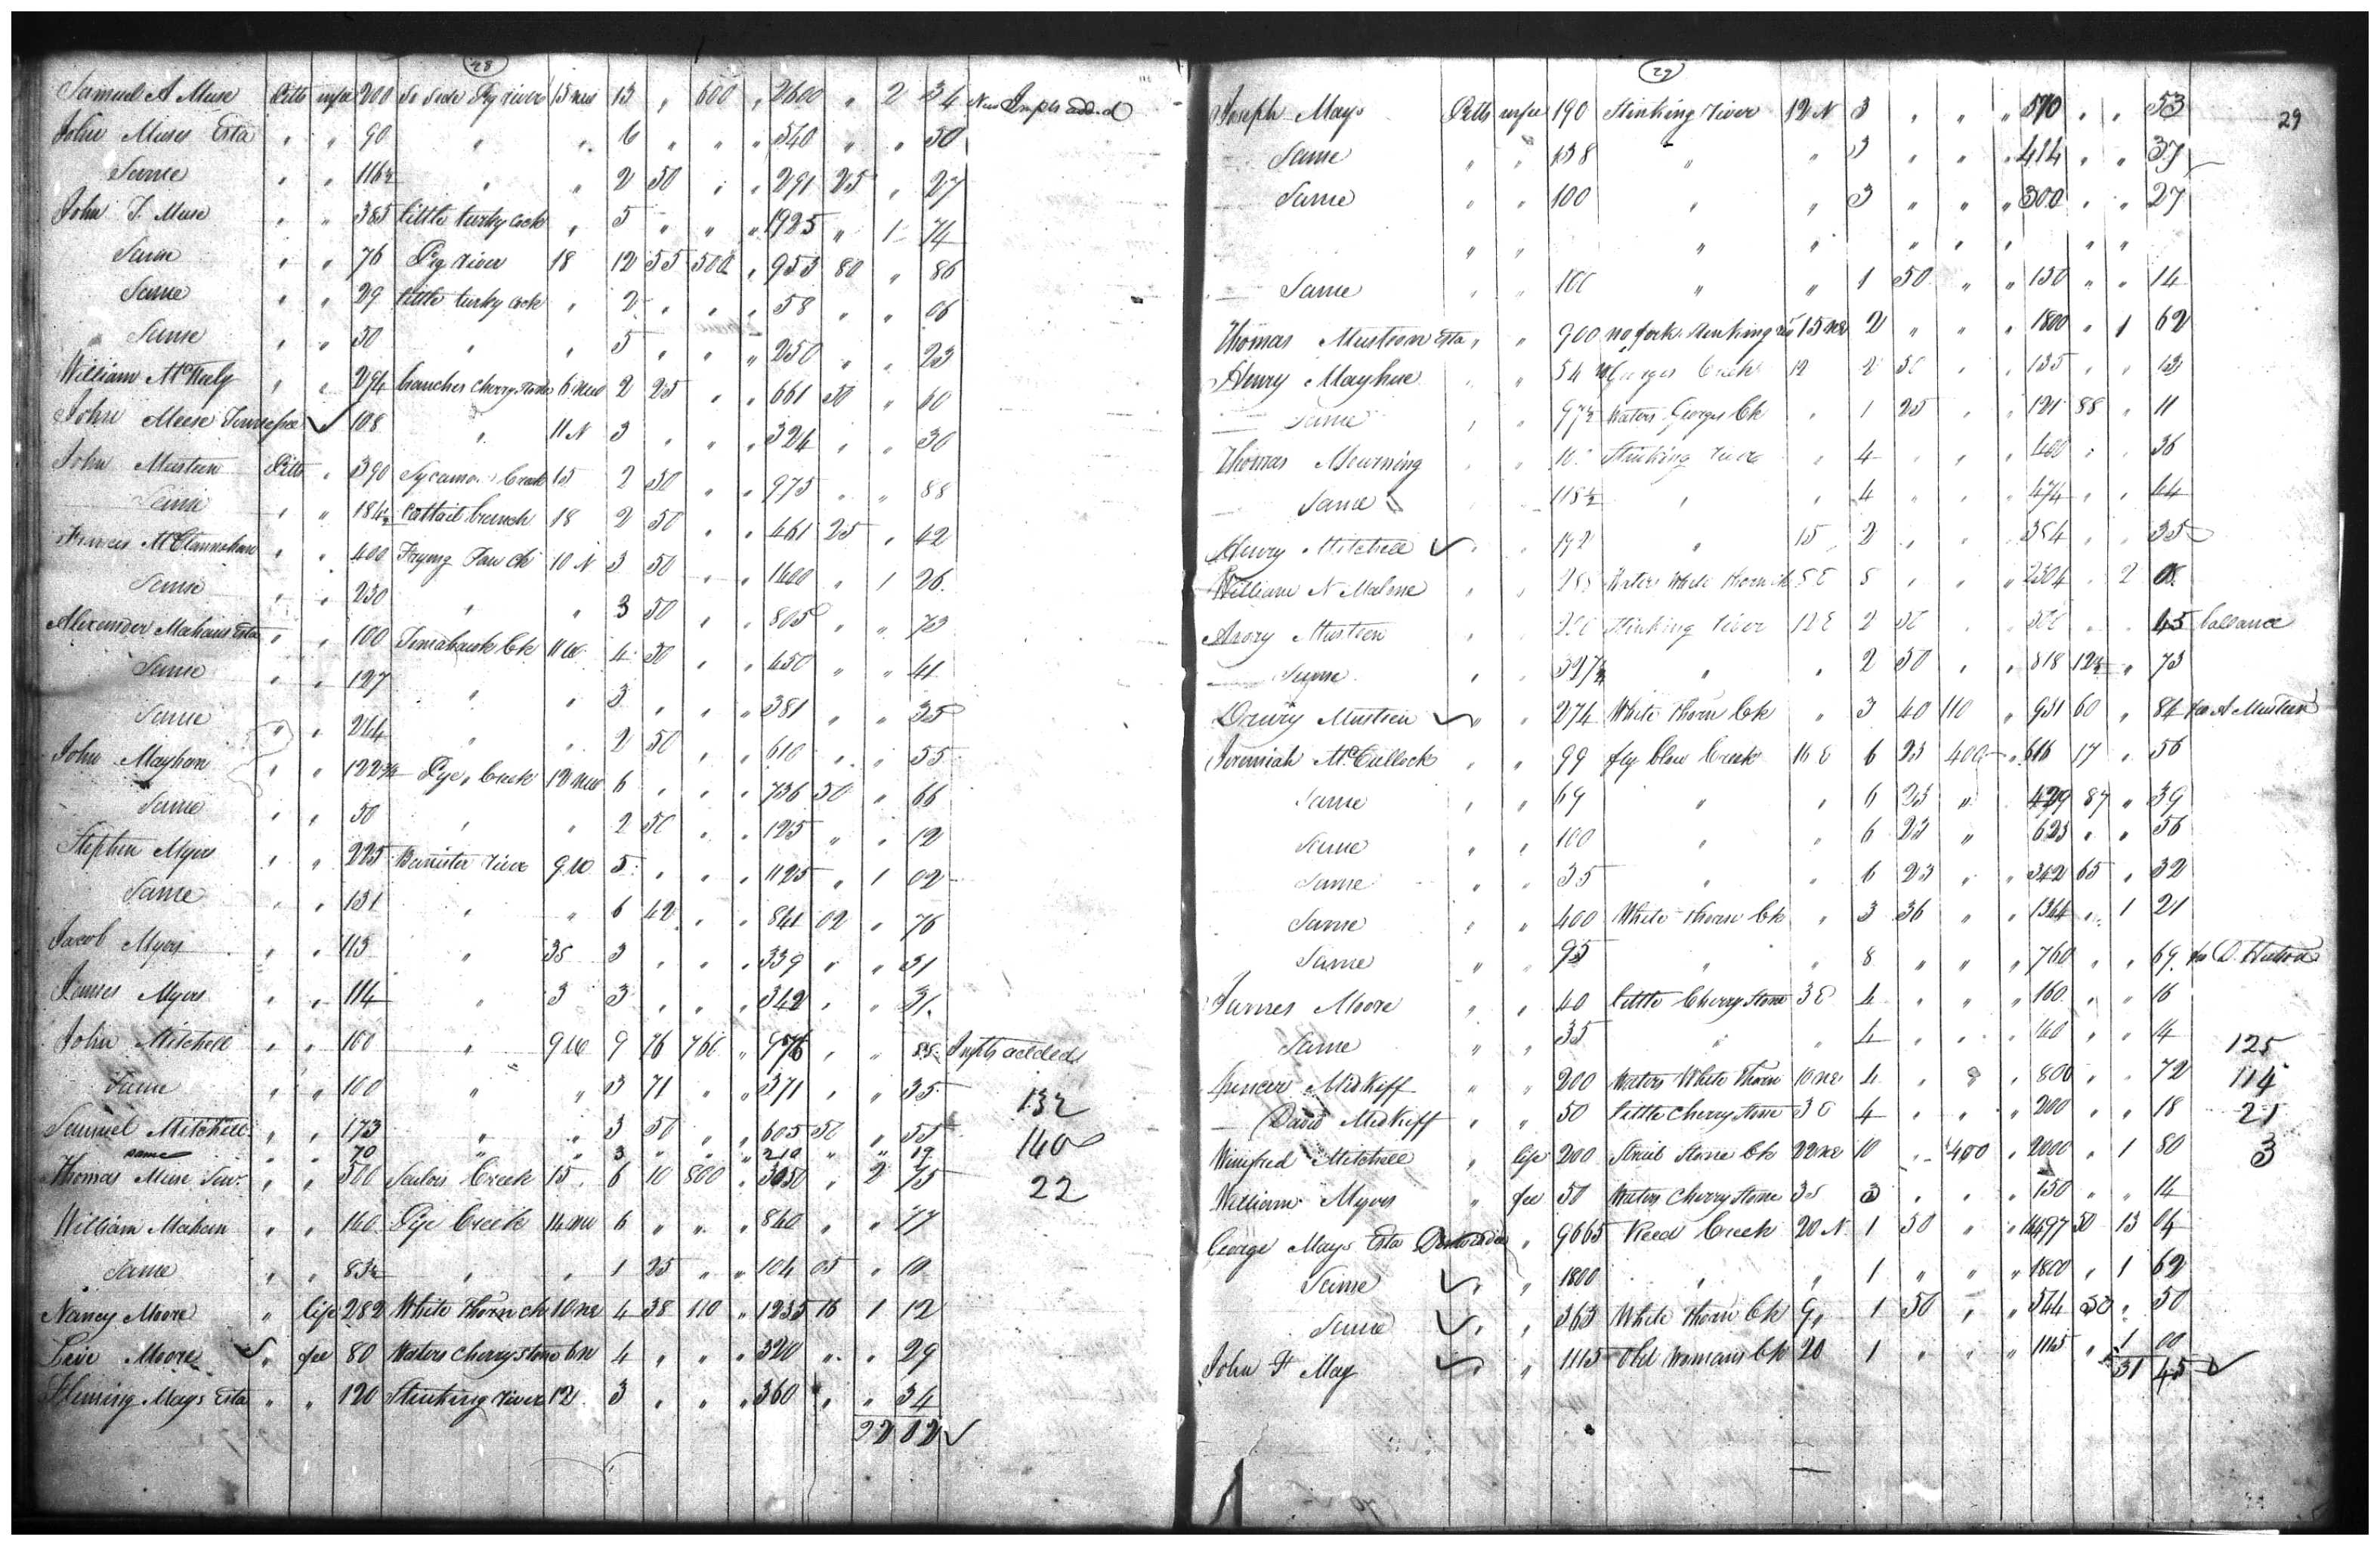 28
Samuel A Muse Pitts infee 200 So Side Pig river 15 NW 13 " 600 " 2600 " 2 34 New Impts added
John Muses Esta " " 90 " " 6 " " " 540 " " 50
Same " " 116½ " " 2 50 " " 291 25 " 27
John T. Muse " " 385 little turky cock " 5 " " " 1925 " 1 74
Same " " 76 Pig river 18 12 55 500 " 953 80 " 86
Same " " 29 little turky cock " 2 " " " 58 " " 06
Same " " 50 " " 5 " " " 250 " " 23
William McNeely " " 294 branches Cherrystone 6 NW 2 25 " " 661 50 " 60
John Meese Tennessee ✓ 108 " 11 N 3 " " " 324 " " 30
John Musteen Pitts " 390 Sycamore Creek 15 2 50 " " 975 " " 88
Same " " 184½ Cattail branch 18 2 50 " " 461 25 " 42
Frances McClannahan " " 400 Frying Pan Ck 10 N 3 50 " " 1400 " 1 26
Same " " 230 " " 3 50 " " 805 " " 73
Alexander Mahans Esta " " 100 Tomahawk Ck 11 W 4 50 " " 450 " " 41
Same " " 127 " " 3 " " " 381 " " 35
Same " " 244 " " 2 50 " " 610 " " 55
John Mayhan " " 122¾ Pye, Creek 12 NW 6 " " " 736 50 " 66
Same " " 50 " " 2 50 " " 125 " " 12
Stephen Myers " " 225 Banister river 9 W 5 " " " 1125 " 1 02
Same " " 131 " " 6 42 " " 841 02 " 76
Jacob Myers " " 113 " 3S 3 " " " 339 " " 31
James Myers " " 114 " 3 3 " " " 342 " " 31
John Mitchell " " 100 " 9 W 9 76 766 " 976 " " 88 Impts added
Same " " 100 " " 3 71 " " 371 " " 35
132
Samuel Mitchell " " 173 " " 3 50 " " 605 50 " 55
140
same " " 70 " " 3 " " " 210 " " 19
Thomas Muse Senr. " " 500 Sailors Creek 15 " 6 10 800 " 3050 " 2 75
22
William Mahan " " 140 Pye Creek 14 NW 6 " " " 840 " " 77
Same " " 83½ " " 1 25 " " 104 05 " 10
Nancy Moore " life 282 White Thorn Ck 10 NE 4 38 110 " 1235 16 1 12
Levi Moore ✓ " fee 80 Waters Cherrystone 6 N 4 " " " 320 " " 29
Fleming Mays Esta " " 120 Stinking river 12 3 " " " 360 " " 34
22 02 ✓
29
29
Joseph Mays Pitts infee 190 Stinking river 12 N 3 " " " 570 " " 53
Same " " 138 " " 3 " " " 414 " " 37
Same " " 100 " " 3 " " " 300 " " 27
" " " " " " " " " "
Same " " 100 " " 1 50 " " 150 " " 14
Thomas Musteen Esta " " 900 no fork Stinking rir 15 NE 2 " " " 1800 " 1 62
Henry Mayhue " " 54 Georges Creek 12 2 50 " " 135 " " 13
Same " " 97½ Waters Georges Ck " 1 25 " " 121 88 " 11
Thomas Mourning " " Stinking river " 4 " " " 400 " " 36
Same 118½ " " 4 " " " 474 " " 44
Henry Mitchell ✓ " " 192 " 15 2 " " " 384 " " 35
William N Malone " " Waters White thorn Ck 8 E 8 " " " 2304 " 2 08
Avory Musteen " " 200 Stinking river 12 E 2 50 " " 500 " " 45 ballance
Same " " 327¼ " " 2 50 " " 818 12½ " 73
Drury Musteen ✓ " " 274 White thorn Ck " 3 40 110 " 931 60 " 84 for A Musteen
Jeremiah McCullock " " 99 fly blow Creek 16 E 6 23 400 " 616 17 " 56
Same " " 69 " " 6 23 " " 429 87 " 39
Same " " 100 " " 6 23 " 623 " " 56
Same " " 35 " " 6 23 " " 342 65 " 32
Same " " 400 White thorn Ck " 3 36 " " 1344 " 1 21
Same " " 95 " " 8 " " " 760 " " 69
James Moore " " 40 little Cherry Stone 3 E 4 " " " 160 " " 16
Same " " 35 " " 4 " " " 140 " " 14
125
Spencer Midkiff " " 200 Waters White Thorn 10 NE 4 " " " 800 " " 72
114
David Midkiff " " 50 little Cherry Stone 3 E 4 " " " 200 " " 18
21
Winifred Mitchell " life 200 Strait Stone Ck 22 NE 10 " 400 " 2000 " 1 80
3
William Myers " fee 50 Waters Cherry Stone 3 S 3 " " " 150 " " 14
George Mays Esta " 9665 Reed Creek 20 N 1 50 " " 14497 50 13 04
Same ✓ " 1800 " " 1 " " " 1800 " 1 62
Same ✓ " " 363 White thorn Ck 9 " 1 50 " " 544 50 " 50
John F May ✓ " " 1115 Old Womans Ck 20 1 " " " 1115 " 1 00
31 45 ✓